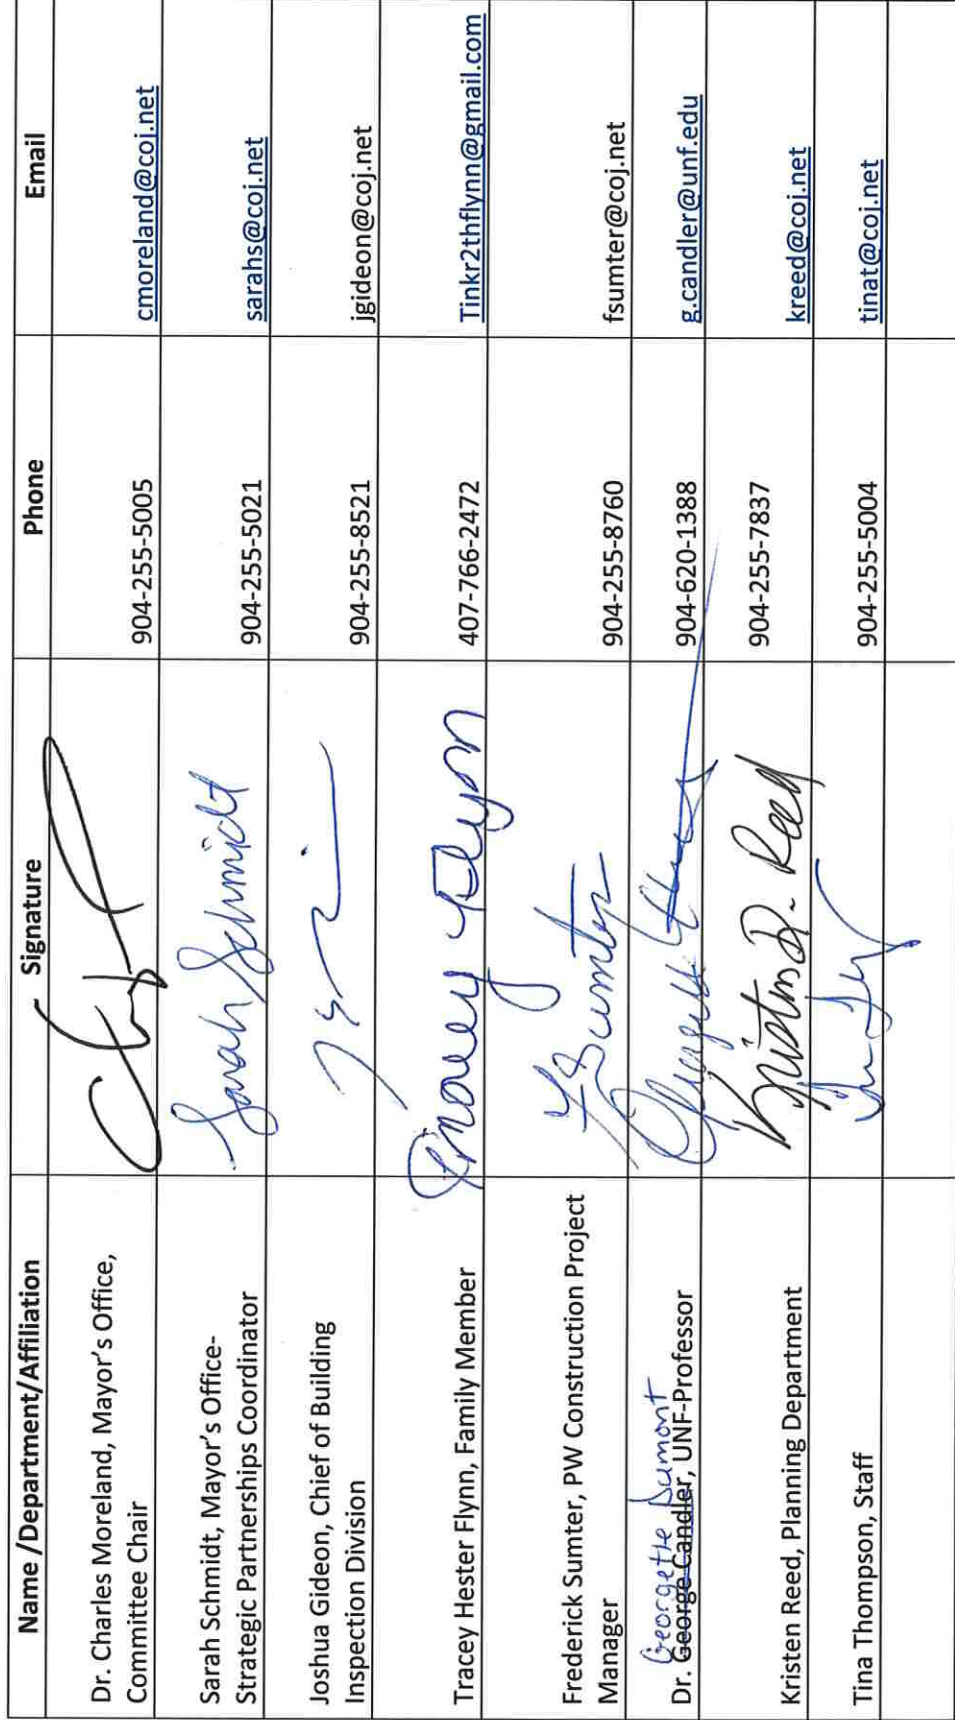 Name /Department/Affiliation Signature Phone Email
Dr. Charles Moreland, Mayor's Office,
Committee Chair 904-255-5005 cmoreland@coj.net
Sarah Schmidt, Mayor's Office-
Strategic Partnerships Coordinator Sarah Schmidt 904-255-5021 sarahs@coj.net
Joshua Gideon, Chief of Building
Inspection Division 904-255-8521 jgideon@coj.net
Tracey Hester Flynn, Family Member Tracey Flynn 407-766-2472 Tinkr2thflynn@gmail.com
Frederick Sumter, PW Construction Project
Manager F Sumter 904-255-8760 fsumter@coj.net
Georgette Dumont
Dr. George Candler, UNF-Professor 904-620-1388 g.candler@unf.edu
Kristen Reed, Planning Department Kristen D. Reed 904-255-7837 kreed@coj.net
Tina Thompson, Staff 904-255-5004 tinat@coj.net